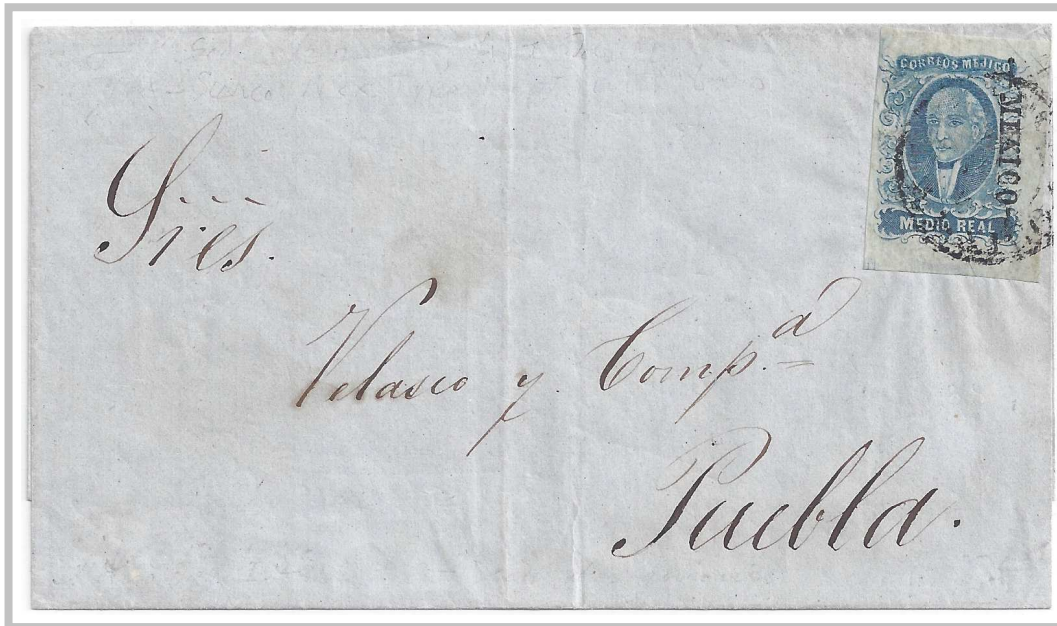 CORREOS MEJICO
MEXICO
MEDIO REAL
Sres.
Velasco y Comp.a
Puebla.